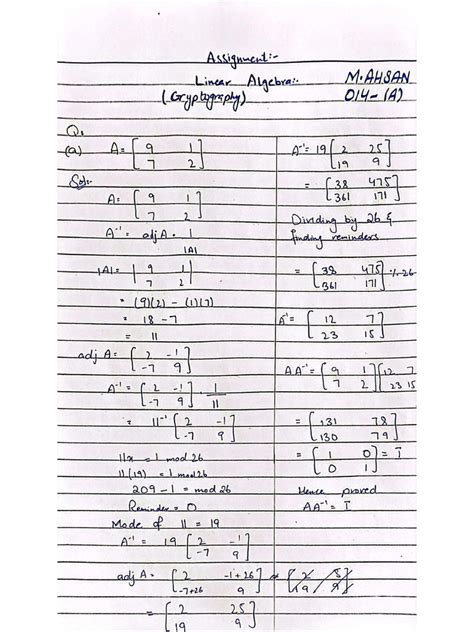 Assignment:-
Linear Algebra:-
(Cryptography)
M.AHSAN
014-(A)
Q.
(a) A = [ 9 1
7 2 ]
Sol:-
A = [ 9 1
7 2 ]
A⁻¹ = adj A · 1
|A|
|A| = | 9 1
7 2 |
= (9)(2) - (1)(7)
= 18 - 7
= 11
adj A = [ 2 -1
-7 9 ]
A⁻¹ = [ 2 -1
-7 9 ] 1
11
= 11⁻¹ [ 2 -1
-7 9 ]
11x = 1 mod 26
11(19) = 1 mod 26
209 - 1 = mod 26
Reminder = 0
Mode of 11 = 19
A⁻¹ = 19 [ 2 -1
-7 9 ]
adj A = [ 2 -1+26
-7+26 9 ]
= [ 2 25
19 9 ]
A⁻¹ = 19 [ 2 25
19 9 ]
= [ 38 475
361 171 ]
Dividing by 26 &
finding reminders
= [ 38 475
361 171 ] % 26
A⁻¹ = [ 12 7
23 15 ]
AA⁻¹ = [ 9 1
7 2 ] [ 12 7
23 15 ]
= [ 131 78
130 79 ]
= [ 1 0
0 1 ] = I
Hence proved
AA⁻¹ = I